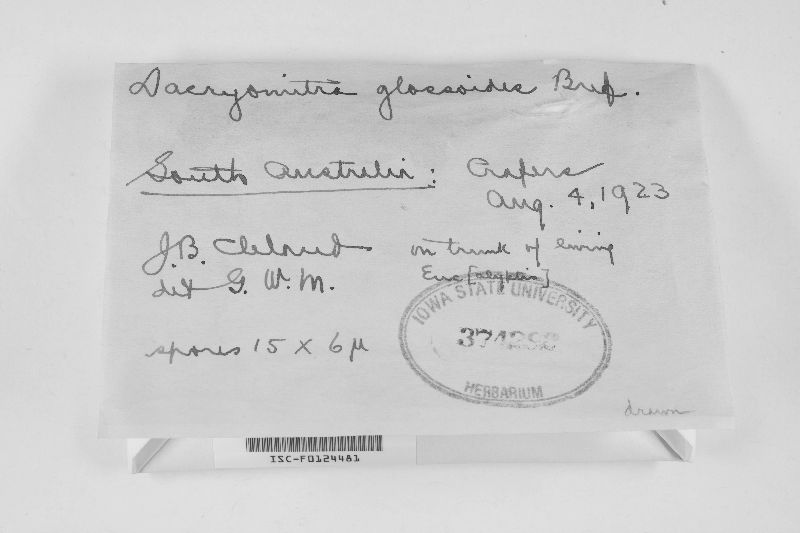 Dacryomitra glossoides Bref.
South Australia: Crafers
Aug. 4, 1923
J.B. Cleland on trunk of living
Euc[alyptus]
det G. W. M.
IOWA STATE UNIVERSITY
HERBARIUM
spores 15 X 6 µ
drawn
ISC-F0124481